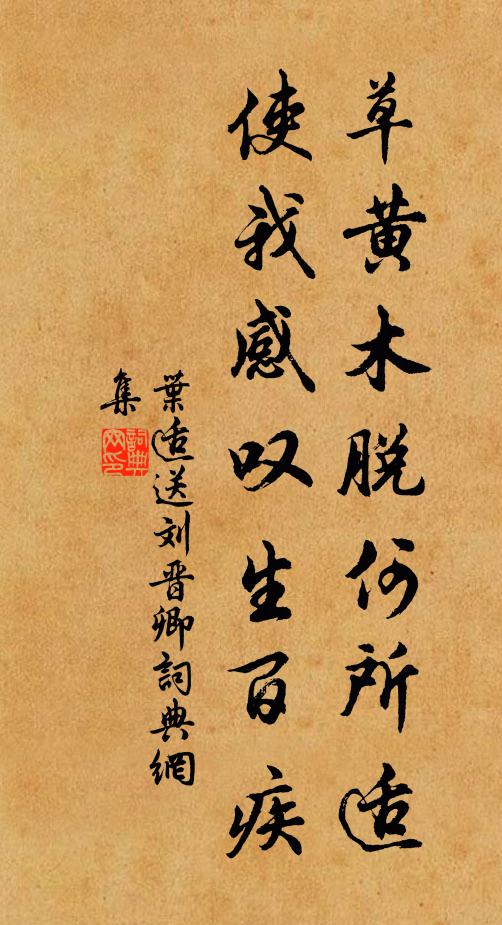 草黄木脱何所适
使我感叹生百疾
葉适送刘晋卿詞典網
集
詞典
网印